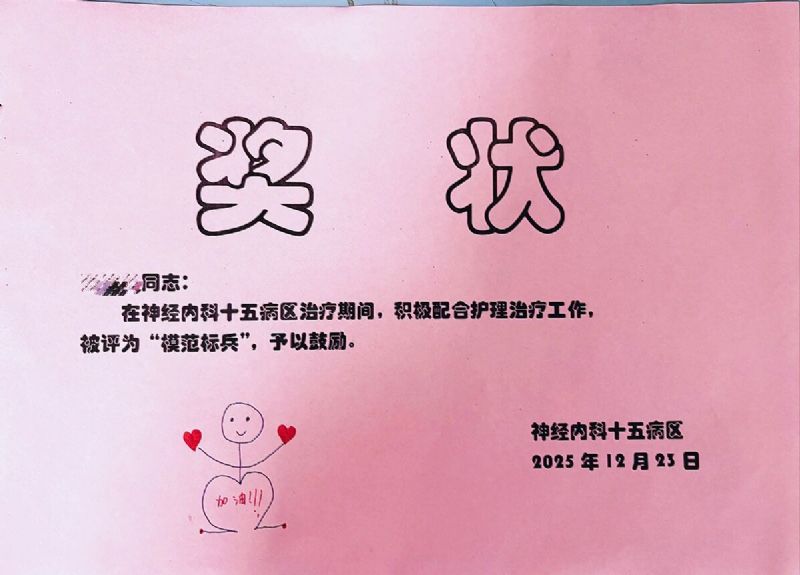 奖状
同志：
在神经内科十五病区治疗期间，积极配合护理治疗工作，
被评为“模范标兵”，予以鼓励。
加油！！！
神经内科十五病区
2025年12月23日